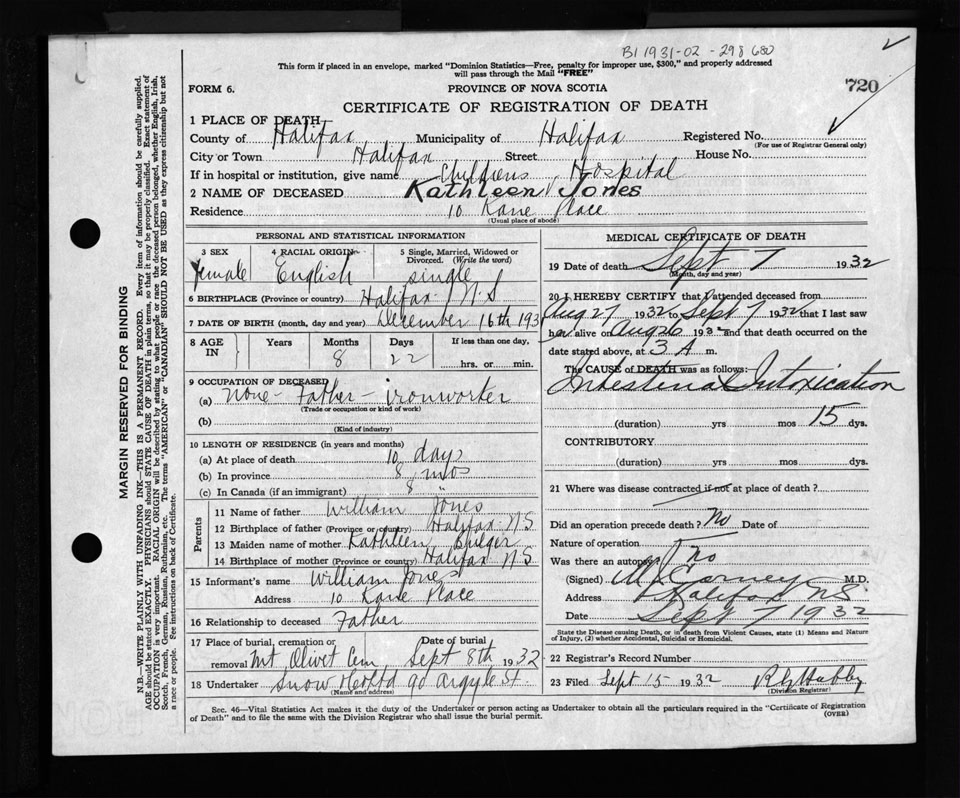 B1 1931-02-298680
This form if placed in an envelope, marked "Dominion Statistics—Free, penalty for improper use, $300," and properly addressed
will pass through the Mail "FREE"
720
FORM 6.
PROVINCE OF NOVA SCOTIA
CERTIFICATE OF REGISTRATION OF DEATH
1 PLACE OF DEATH
County of Halifax Municipality of Halifax Registered No.
(For use of Registrar General only)
City or Town Halifax Street House No.
If in hospital or institution, give name Childrens Hospital
2 NAME OF DECEASED Kathleen Jones
Residence 10 Kane Place
(Usual place of abode)
PERSONAL AND STATISTICAL INFORMATION
3 SEX female
4 RACIAL ORIGIN English
5 Single, Married, Widowed or Divorced. (Write the word) single
6 BIRTHPLACE (Province or country) Halifax N.S
7 DATE OF BIRTH (month, day and year) December 16th 193
8 AGE IN Years Months 8 Days 22 If less than one day, hrs. or min.
9 OCCUPATION OF DECEASED
(a) none - Father - ironworker
(Trade or occupation or kind of work)
(b)
(Kind of industry)
10 LENGTH OF RESIDENCE (in years and months)
(a) At place of death 10 days
(b) In province 8 mos
(c) In Canada (if an immigrant) 8 "
Parents
11 Name of father William Jones
12 Birthplace of father (Province or country) Halifax N.S
13 Maiden name of mother Kathleen
14 Birthplace of mother (Province or country) Halifax N S
15 Informant's name William Jones
Address 10 Kane Place
16 Relationship to deceased Father
17 Place of burial, cremation or removal Mt. Olivet Cem Date of burial Sept 8th 1932
18 Undertaker Snow & Co Ltd 90 Argyle St.
(Name and address)
MEDICAL CERTIFICATE OF DEATH
19 Date of death Sept 7 1932
(Month, day and year)
20 I HEREBY CERTIFY that I attended deceased from
Aug 27 1932 to Sept 7 1932 that I last saw
her alive on Aug 26 1932 and that death occurred on the
date stated above, at 3 A m.
The CAUSE of DEATH was as follows:
Intestinal Intoxication
(duration) yrs mos 15 dys.
CONTRIBUTORY
(duration) yrs mos dys.
21 Where was disease contracted if not at place of death?
Did an operation precede death? No Date of
Nature of operation
Was there an autopsy? no
(Signed) M.D.
Address Halifax NS.
Date Sept 7 1932
State the Disease causing Death, or in death from Violent Causes, state (1) Means and Nature
of Injury, (2) whether Accidental, Suicidal or Homicidal.
22 Registrar's Record Number
23 Filed Sept 15 1932
(Division Registrar)
Sec. 46—Vital Statistics Act makes it the duty of the Undertaker or person acting as Undertaker to obtain all the particulars required in the "Certificate of Registration
of Death" and to file the same with the Division Registrar who shall issue the burial permit.
(OVER)
MARGIN RESERVED FOR BINDING
N.B.—WRITE PLAINLY WITH UNFADING INK—THIS IS A PERMANENT RECORD. Every item of information should be carefully supplied.
AGE should be stated EXACTLY. PHYSICIANS should STATE CAUSE OF DEATH in plain terms, so that it may be properly classified. Exact statement of
OCCUPATION is very important. RACIAL ORIGIN will be described by stating to what people or race the deceased person belonged, whether English, Irish,
Scotch, French, German, Russian, Ruthenian, etc. The terms "AMERICAN" or "CANADIAN" SHOULD NOT BE USED as they express citizenship but not
a race or people. See instructions on back of Certificate.